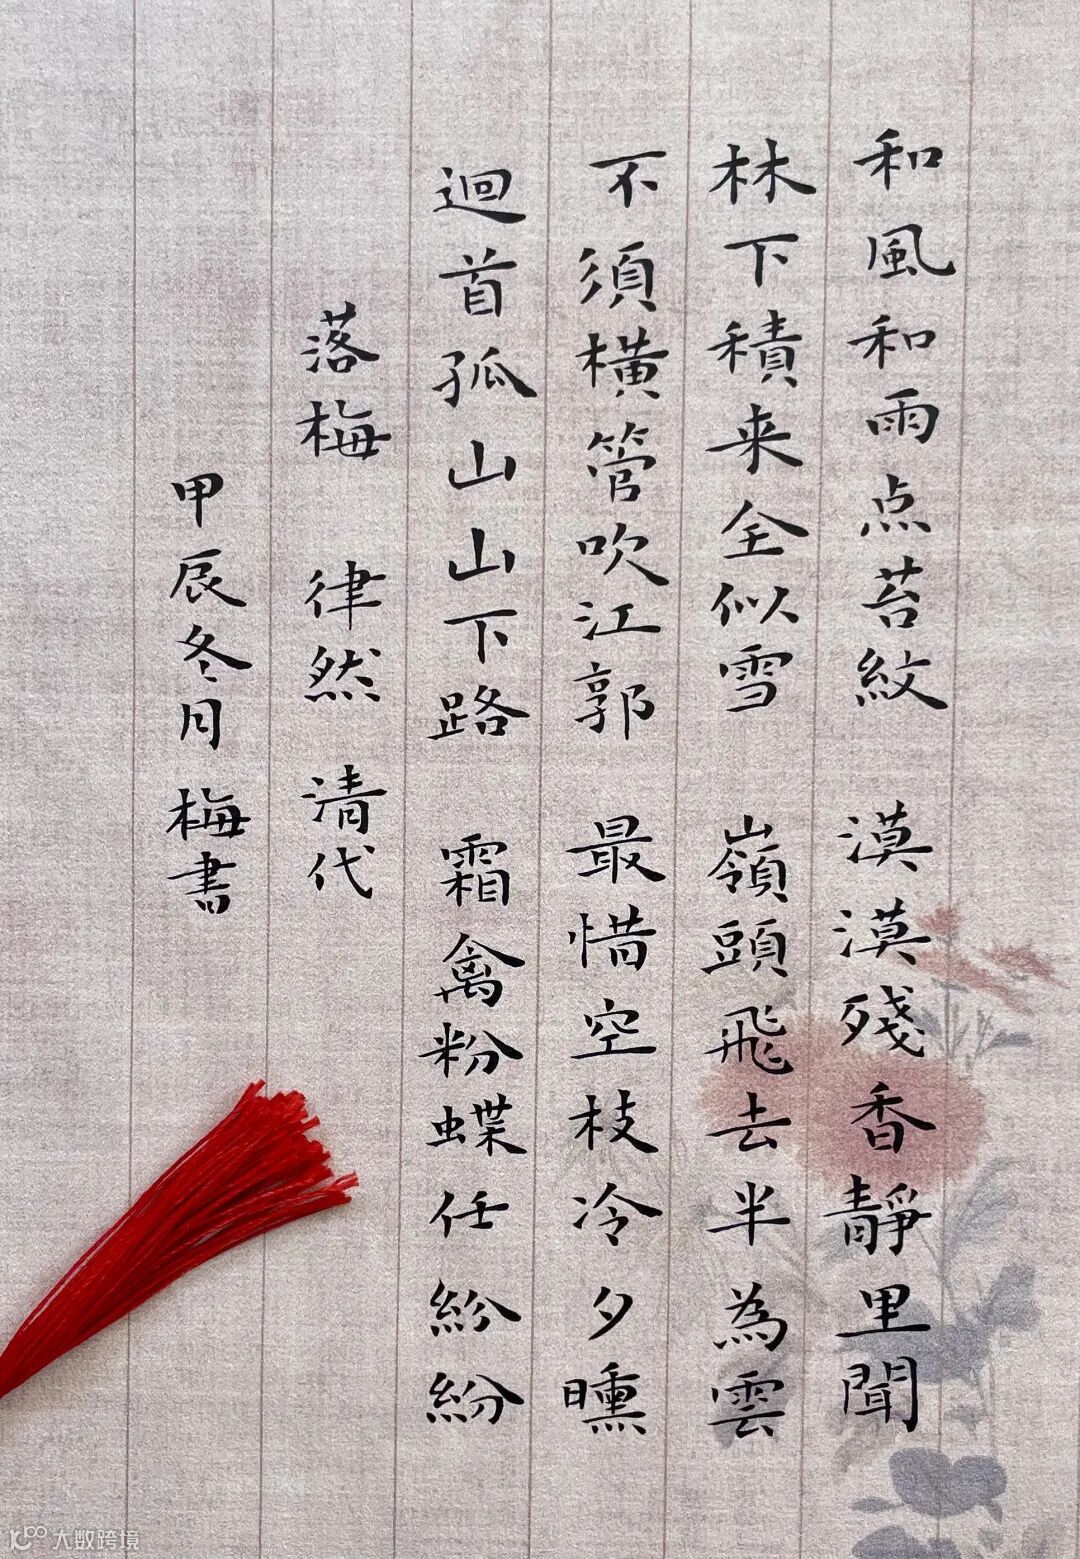 和風和雨点苔紋 漠漠殘香靜里聞
林下積来全似雪 嶺頭飛去半為雲
不須横管吹江郭 最惜空枝冷夕曛
迴首孤山山下路 霜禽粉蝶任紛紛
落梅 律然 清代
甲辰冬月梅書
大数跨境